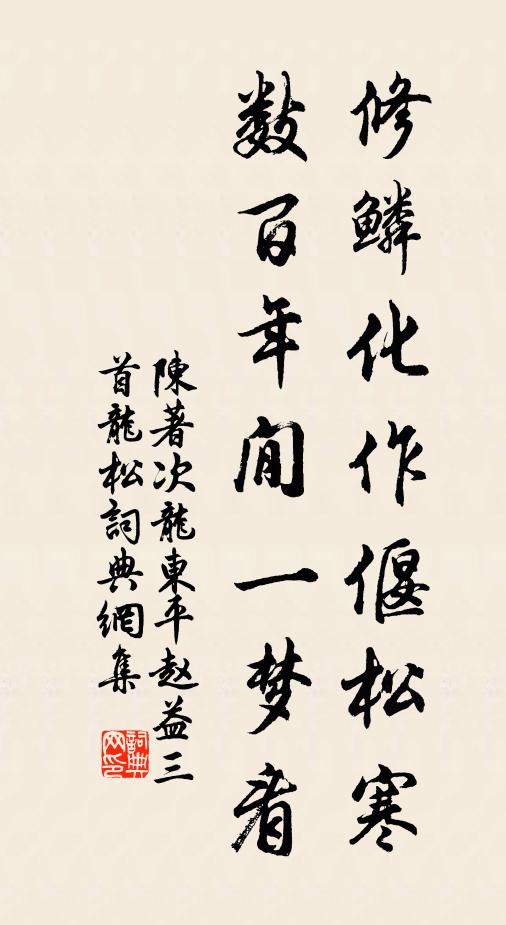 修鳞化作偃松寒
数百年间一梦看
陳著次龍東平赵益三
首龍松詞典網集
詞典
网印